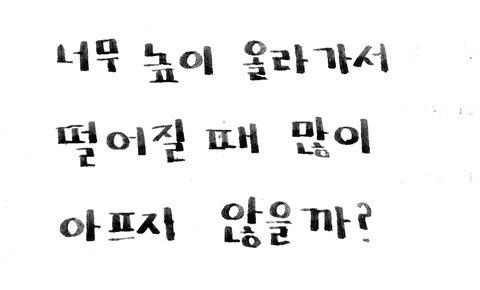 너무 높이 올라가서
떨어질 때 많이
아프지 않을까?